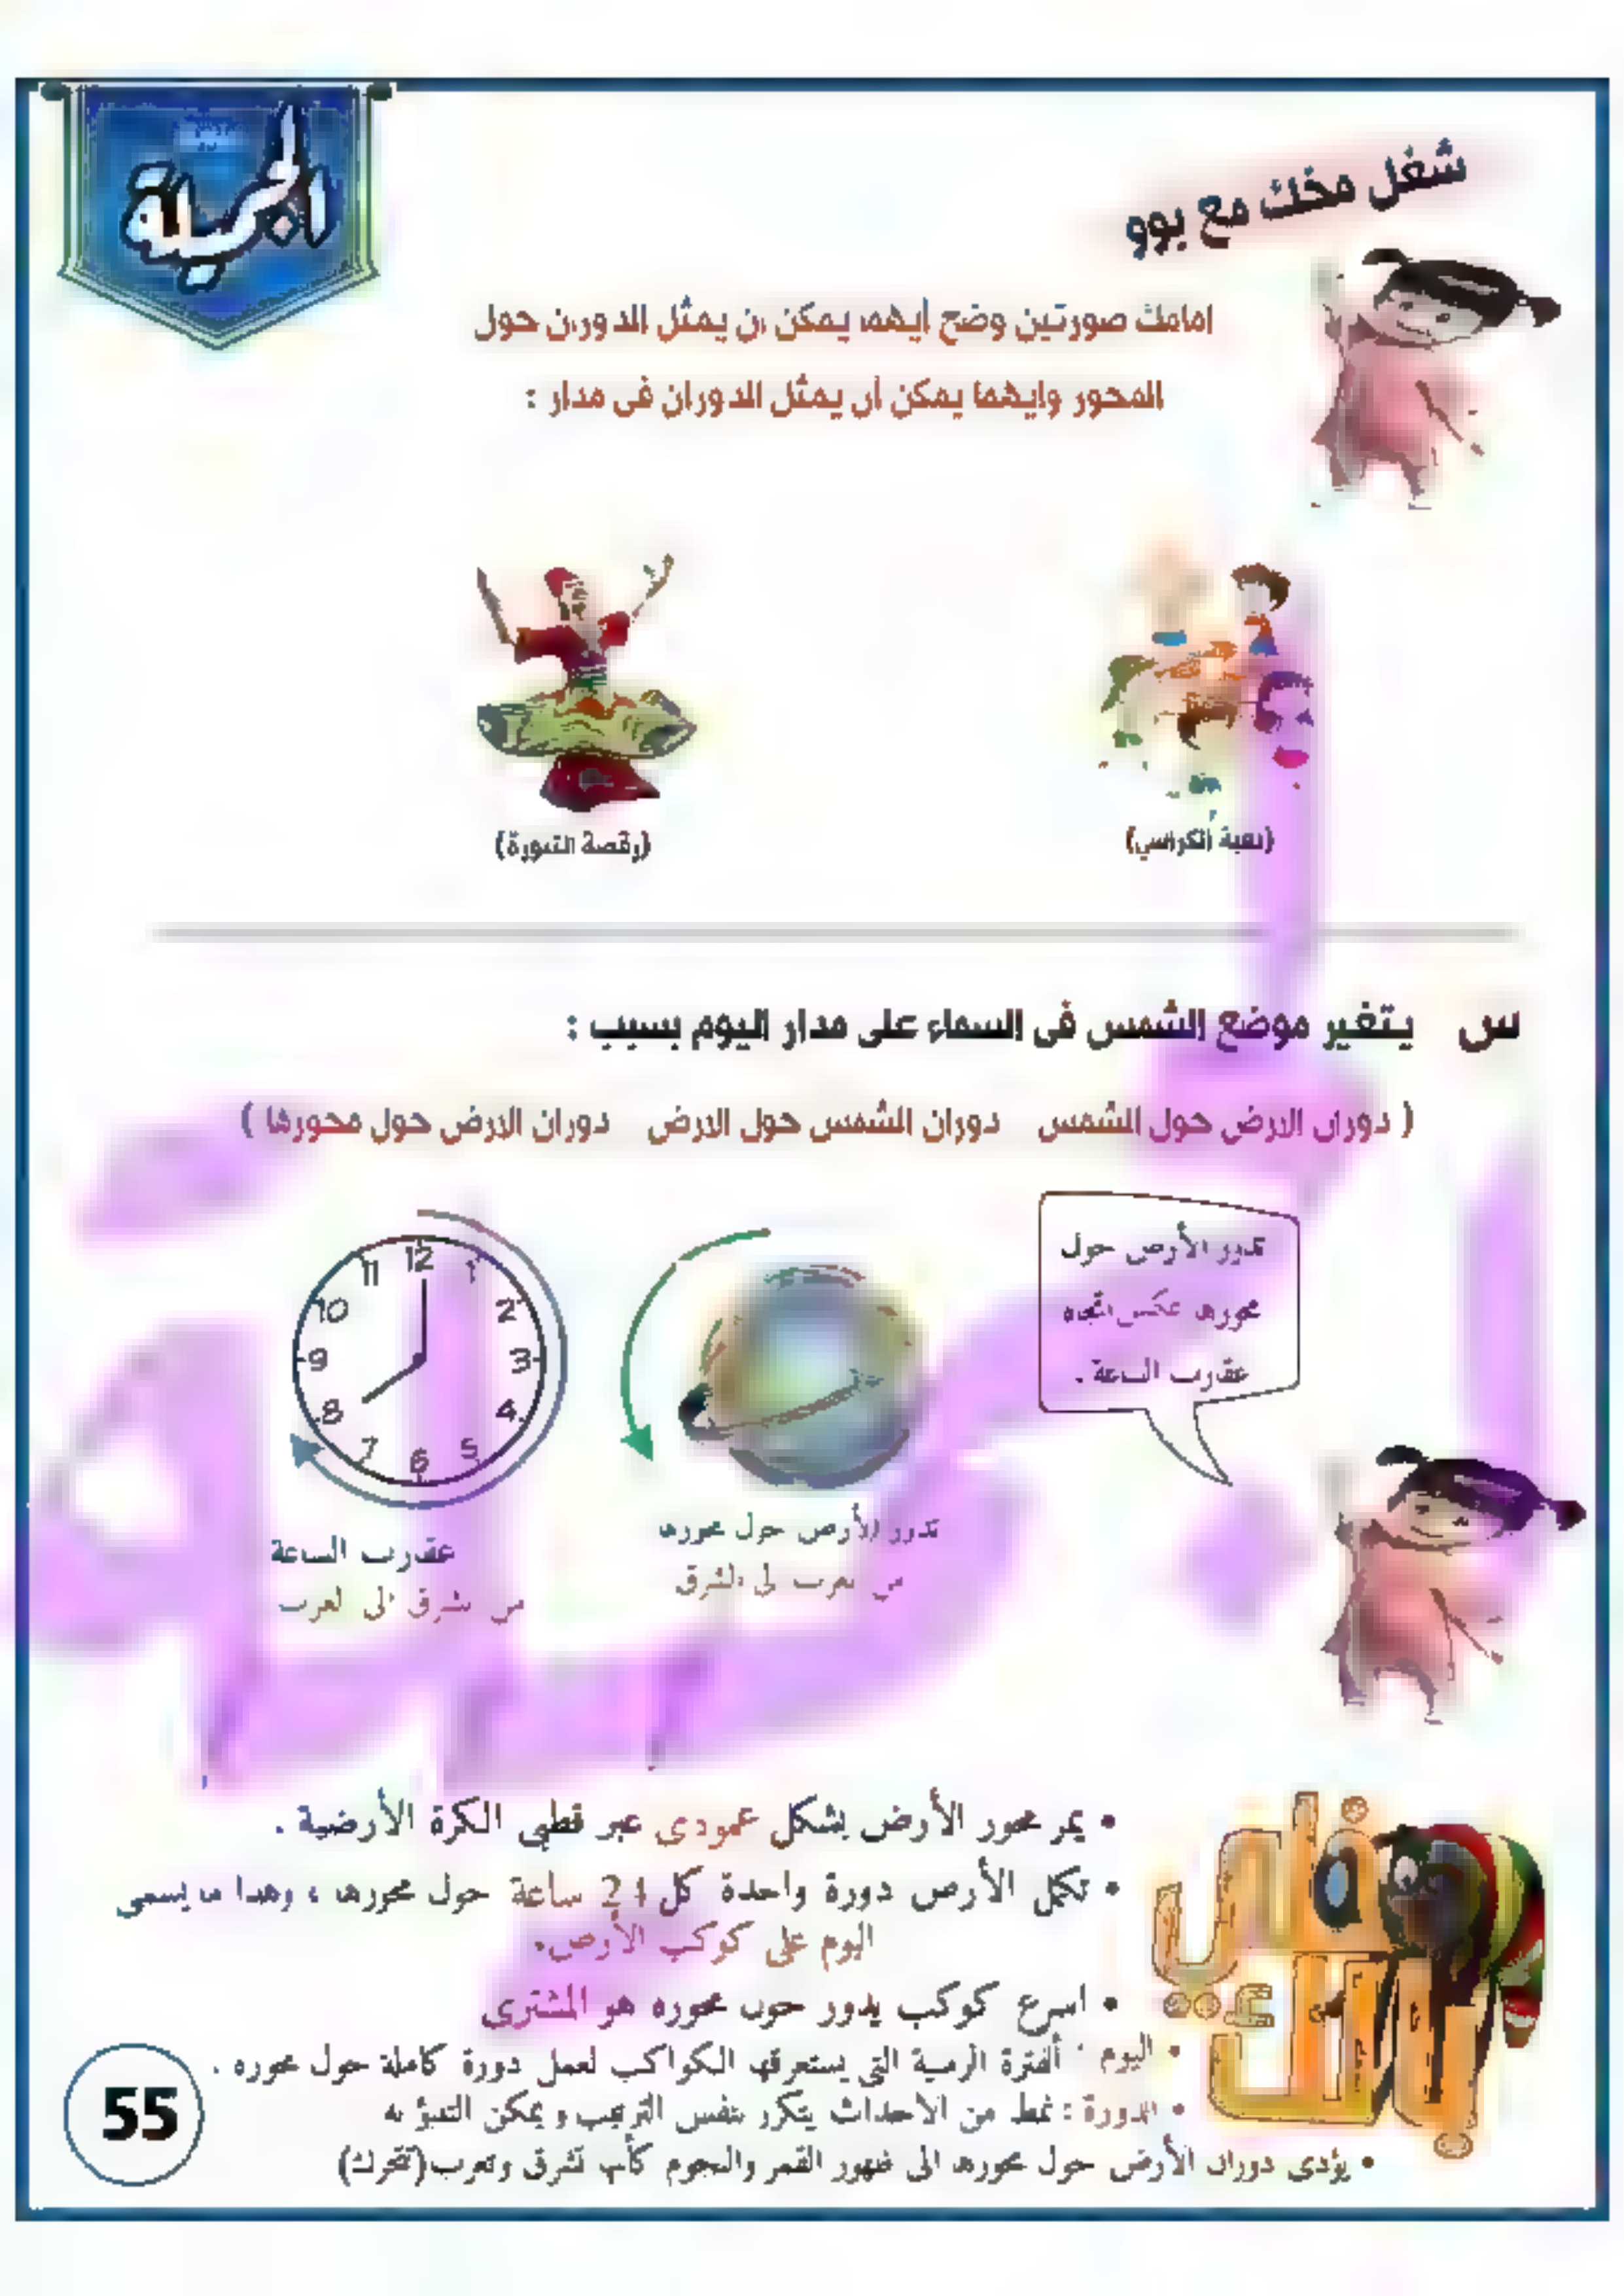 الجميلة
شغل مخك مع بوو
امامك صورتين وضح أيهما يمكن ان يمثل الدوران حول
المحور وايهما يمكن أن يمثل الدوران فى مدار :
(لعبة الكراسي)
(رقصة التنورة)
س يتغير موضع الشمس فى السماء على مدار اليوم بسبب :
( دوران الارض حول الشمس دوران الشمس حول الارض دوران الارض حول محورها )
تدور الأرض حول
محورها عكس اتجاه
عقارب الساعة .
12
11 1
10 2
9 3
8 4
7 5
6
تدور الأرض حول محورها
من الغرب الى الشرق
عقارب الساعة
من الشرق الى الغرب
خلي
بالك
• يمر محور الأرض بشكل عمودى عبر قطبي الكرة الأرضية .
• تكمل الأرض دورة واحدة كل 24 ساعة حول محورها ، وهذا ما يسمى
اليوم على كوكب الأرض.
• اسرع كوكب يدور حول محوره هو المشترى
• اليوم : الفترة الزمنية التى يستغرقها الكواكب لعمل دورة كاملة حول محوره .
• الدورة : نمط من الاحداث يتكرر بنفس الترتيب و يمكن التنبؤ به
• يؤدى دوران الأرض حول محورها الى ظهور القمر والنجوم كأنها تشرق وتغرب (تتحرك)
55